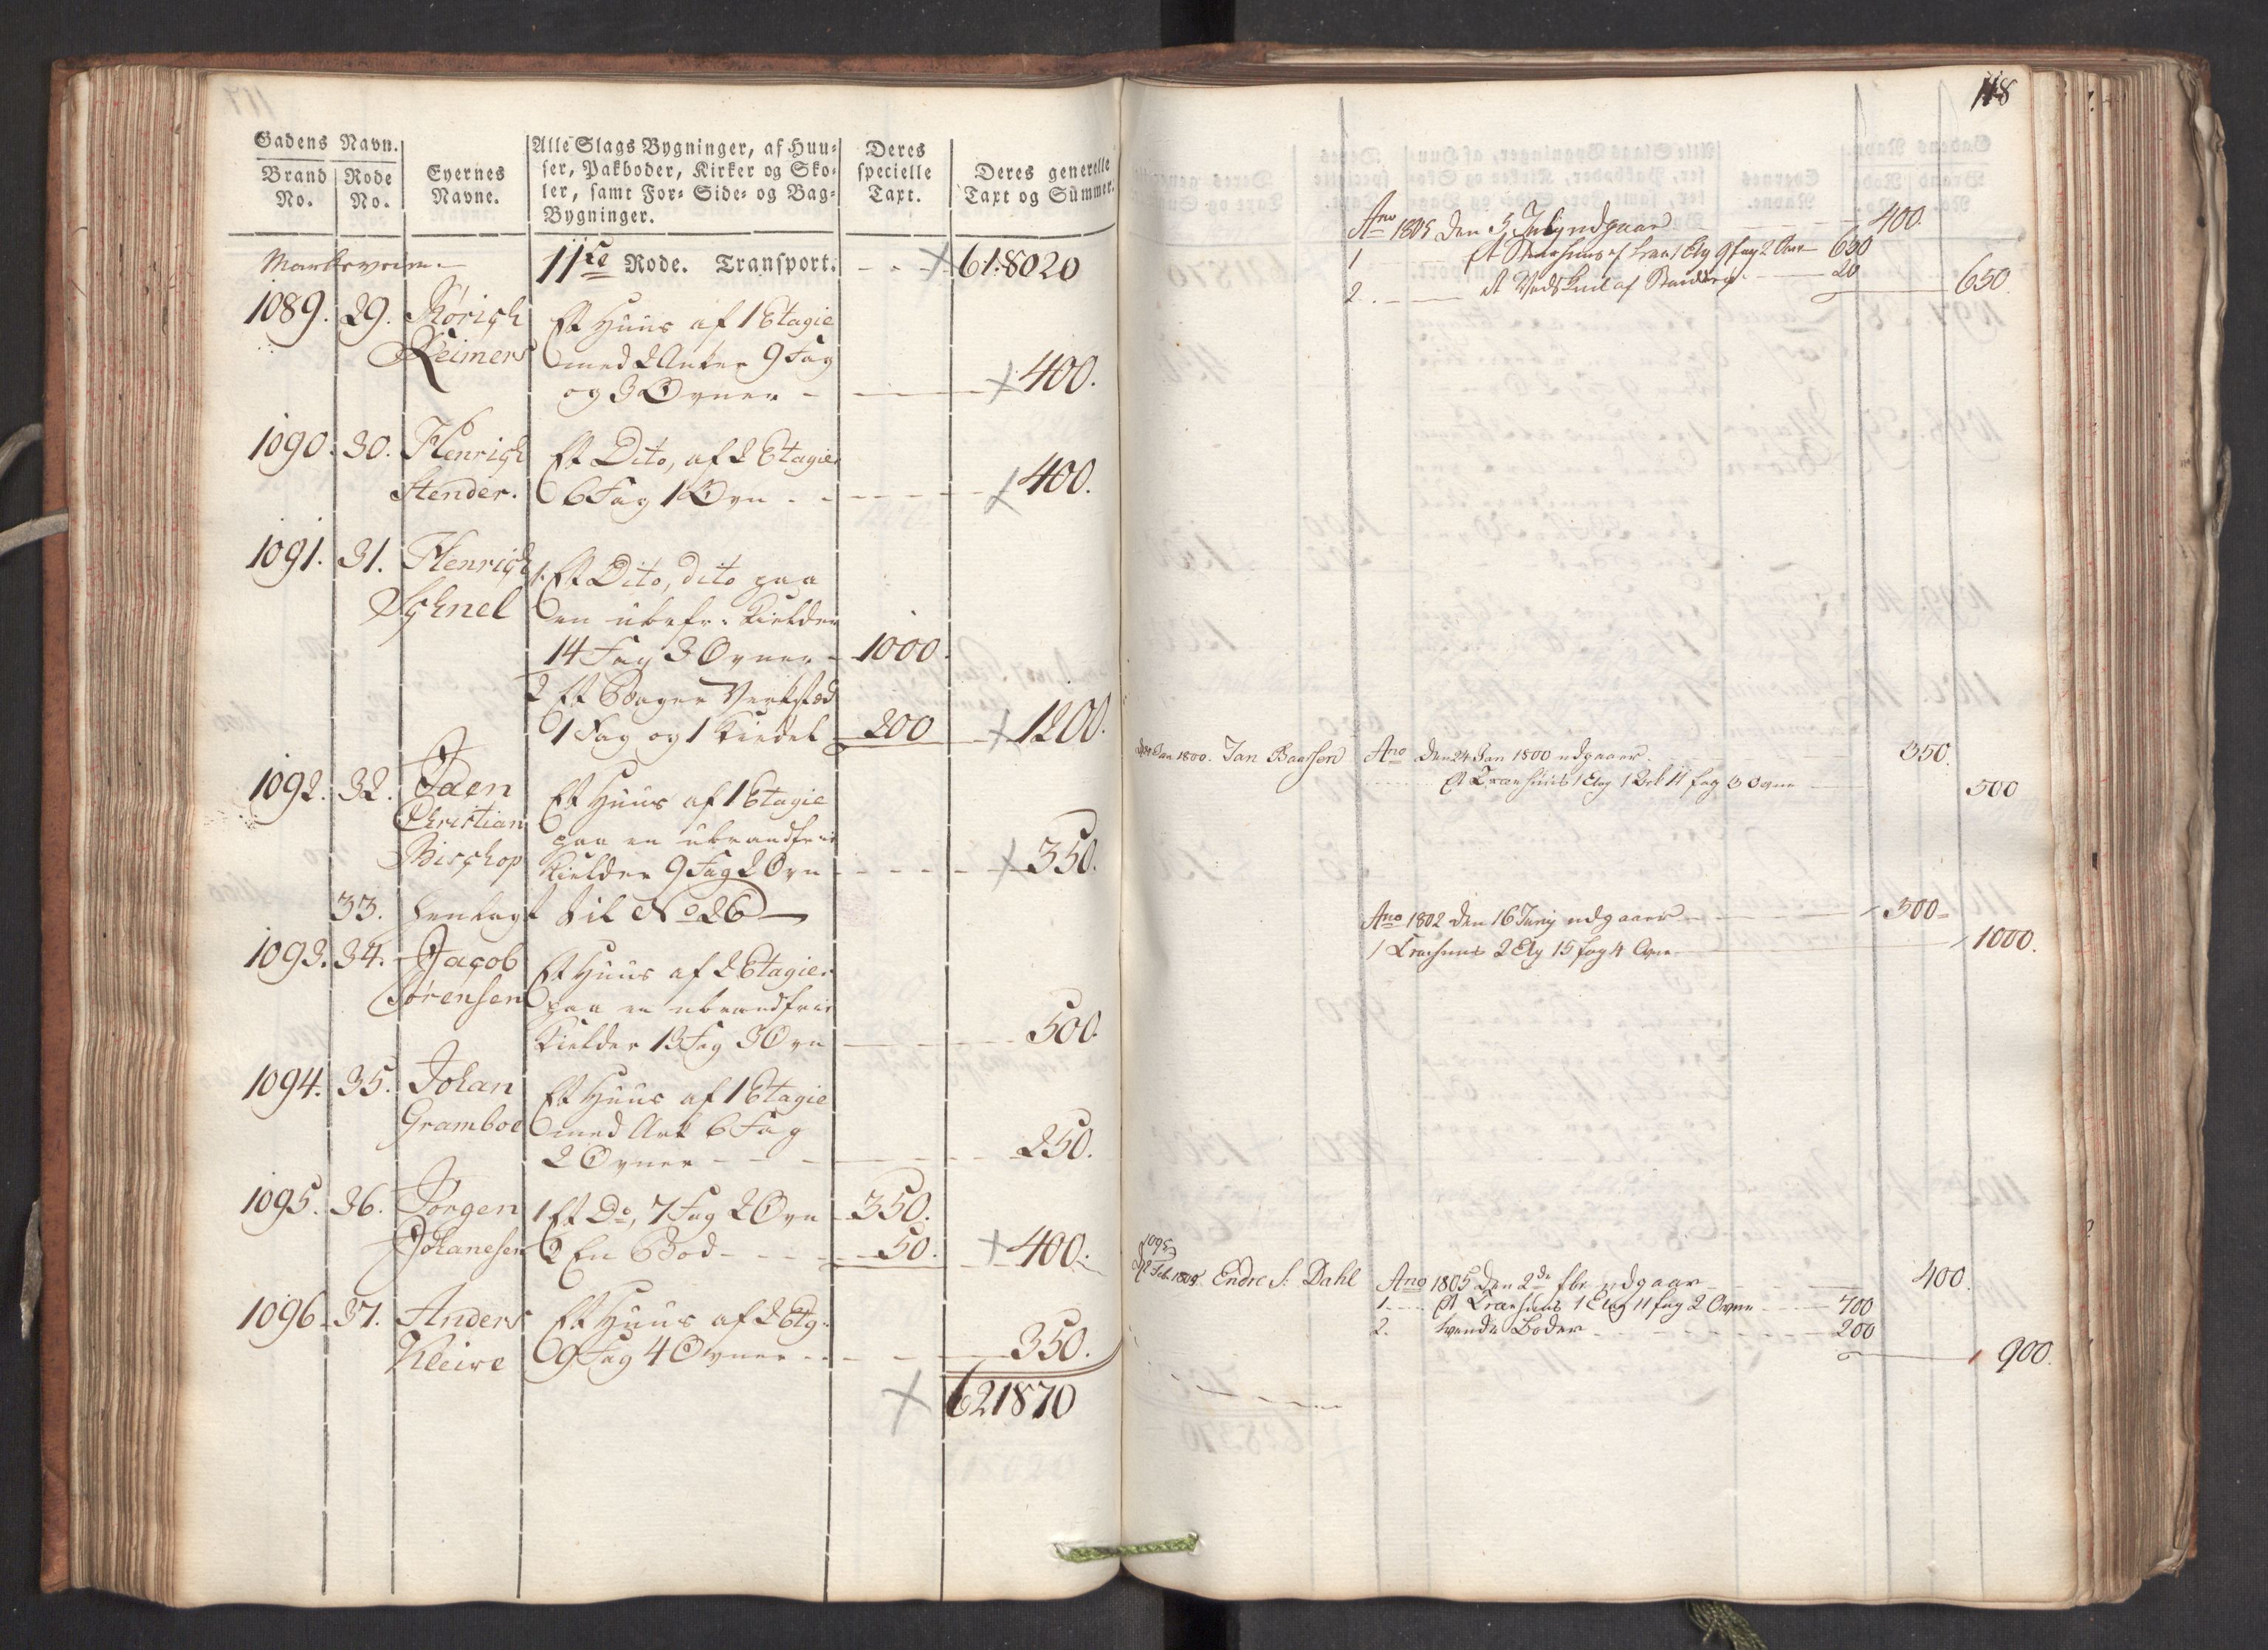 Gadens Navn.
Brand No.
Rode No.
Eyernes Navne.
Alle Slags Bygninger, af Huu-
ser, Pakboder, Kirker og Sko-
ler, samt For- Side- og Bag-
Bygninger.
Deres specielle Taxt.
Deres generelle Taxt og Summer.
11te Rode. Transport. 618020
1089. 29. Et Huus af 1 Etagie
Reimers med 2 Arker 9 Fag
og 3 Ovner 400.
1090. 30. Henrich Et Dito, af 2 Etagier
Stender. 6 Fag 1 Ovn 400.
1091. 31. Henrich 1. Et Dito, dito paa
Schnel en ubrfr: Kielder
14 Fag 3 Ovner 1000.
2 Et Bager Verksted
1 Fag og 1 Kiedel 200 1200.
1092. 32. Et Huus af 1 Etagie
Christian paa en ubrandfrie
Bischop Kielder 9 Fag 2 Ovn 350.
33. henlagt til No 26
1093. 34. Jacob Et Huus af 2 Etagier
Sørensen paa en ubrandfrie
Kielder 13 Fag 3 Ovn 500.
1094. 35. Johan Et Huus af 1 Etagie
Gramboe med Ark 6 Fag
2 Ovner 250.
1095. 36. Jørgen 1 Et Do, 7 Fag 2 Ovn 350.
Johanesen 2 En Bod 50. 400.
1096. 37. Anders Et Huus af 2 Etg.
Kleive 9 Fag 4 Ovner 350.
621870
118
Ano 1805 den 3 July udgaar 400.
1 630
2. et 20 650.
Jan 1800. Jan Baarsen Ano den 24 Jan 1800 udgaaer 350.
Et Træehuus 1 Etg 11 fag 3 Ovne 500
Ano 1802 den 16 Juny udgaaer 500
1 Træhuus 2 Etg 15 fag 4 Ovne 1000.
1095
Feb. 1805. Endre S. Dahl Ano 1805 den 2de fbr udgaar 400.
1. Et Træehuus 1 Etag 11 fag 2 Ovne 700
2. tvende Boder 200
900.